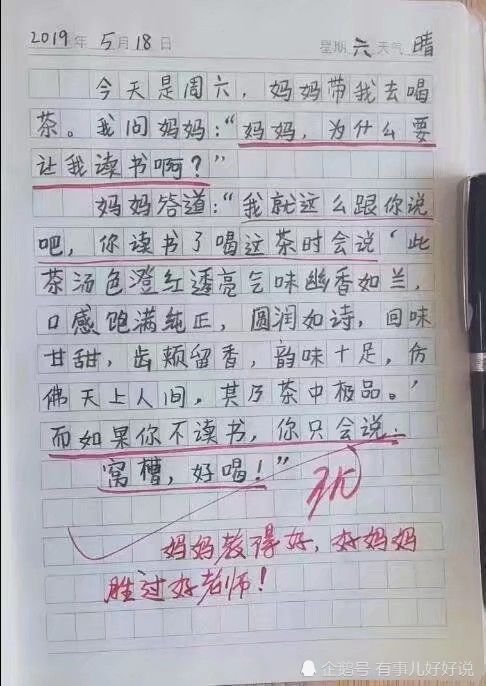 2019年 5月18日 星期 六 天气 晴
今天是周六，妈妈带我去喝
茶。我问妈妈：“妈妈，为什么要
让我读书啊？”
妈妈答道：“我就这么跟你说
吧，你读书了喝这茶时会说‘此
茶汤色澄红透亮气味幽香如兰，
口感饱满纯正，圆润如诗，回味
甘甜，齿颊留香，韵味十足，仿
佛天上人间，其乃茶中极品。’
而如果你不读书，你只会说：
窝槽，好喝！”
妈妈教得好，好妈妈
胜过好老师！
企鹅号 有事儿好好说